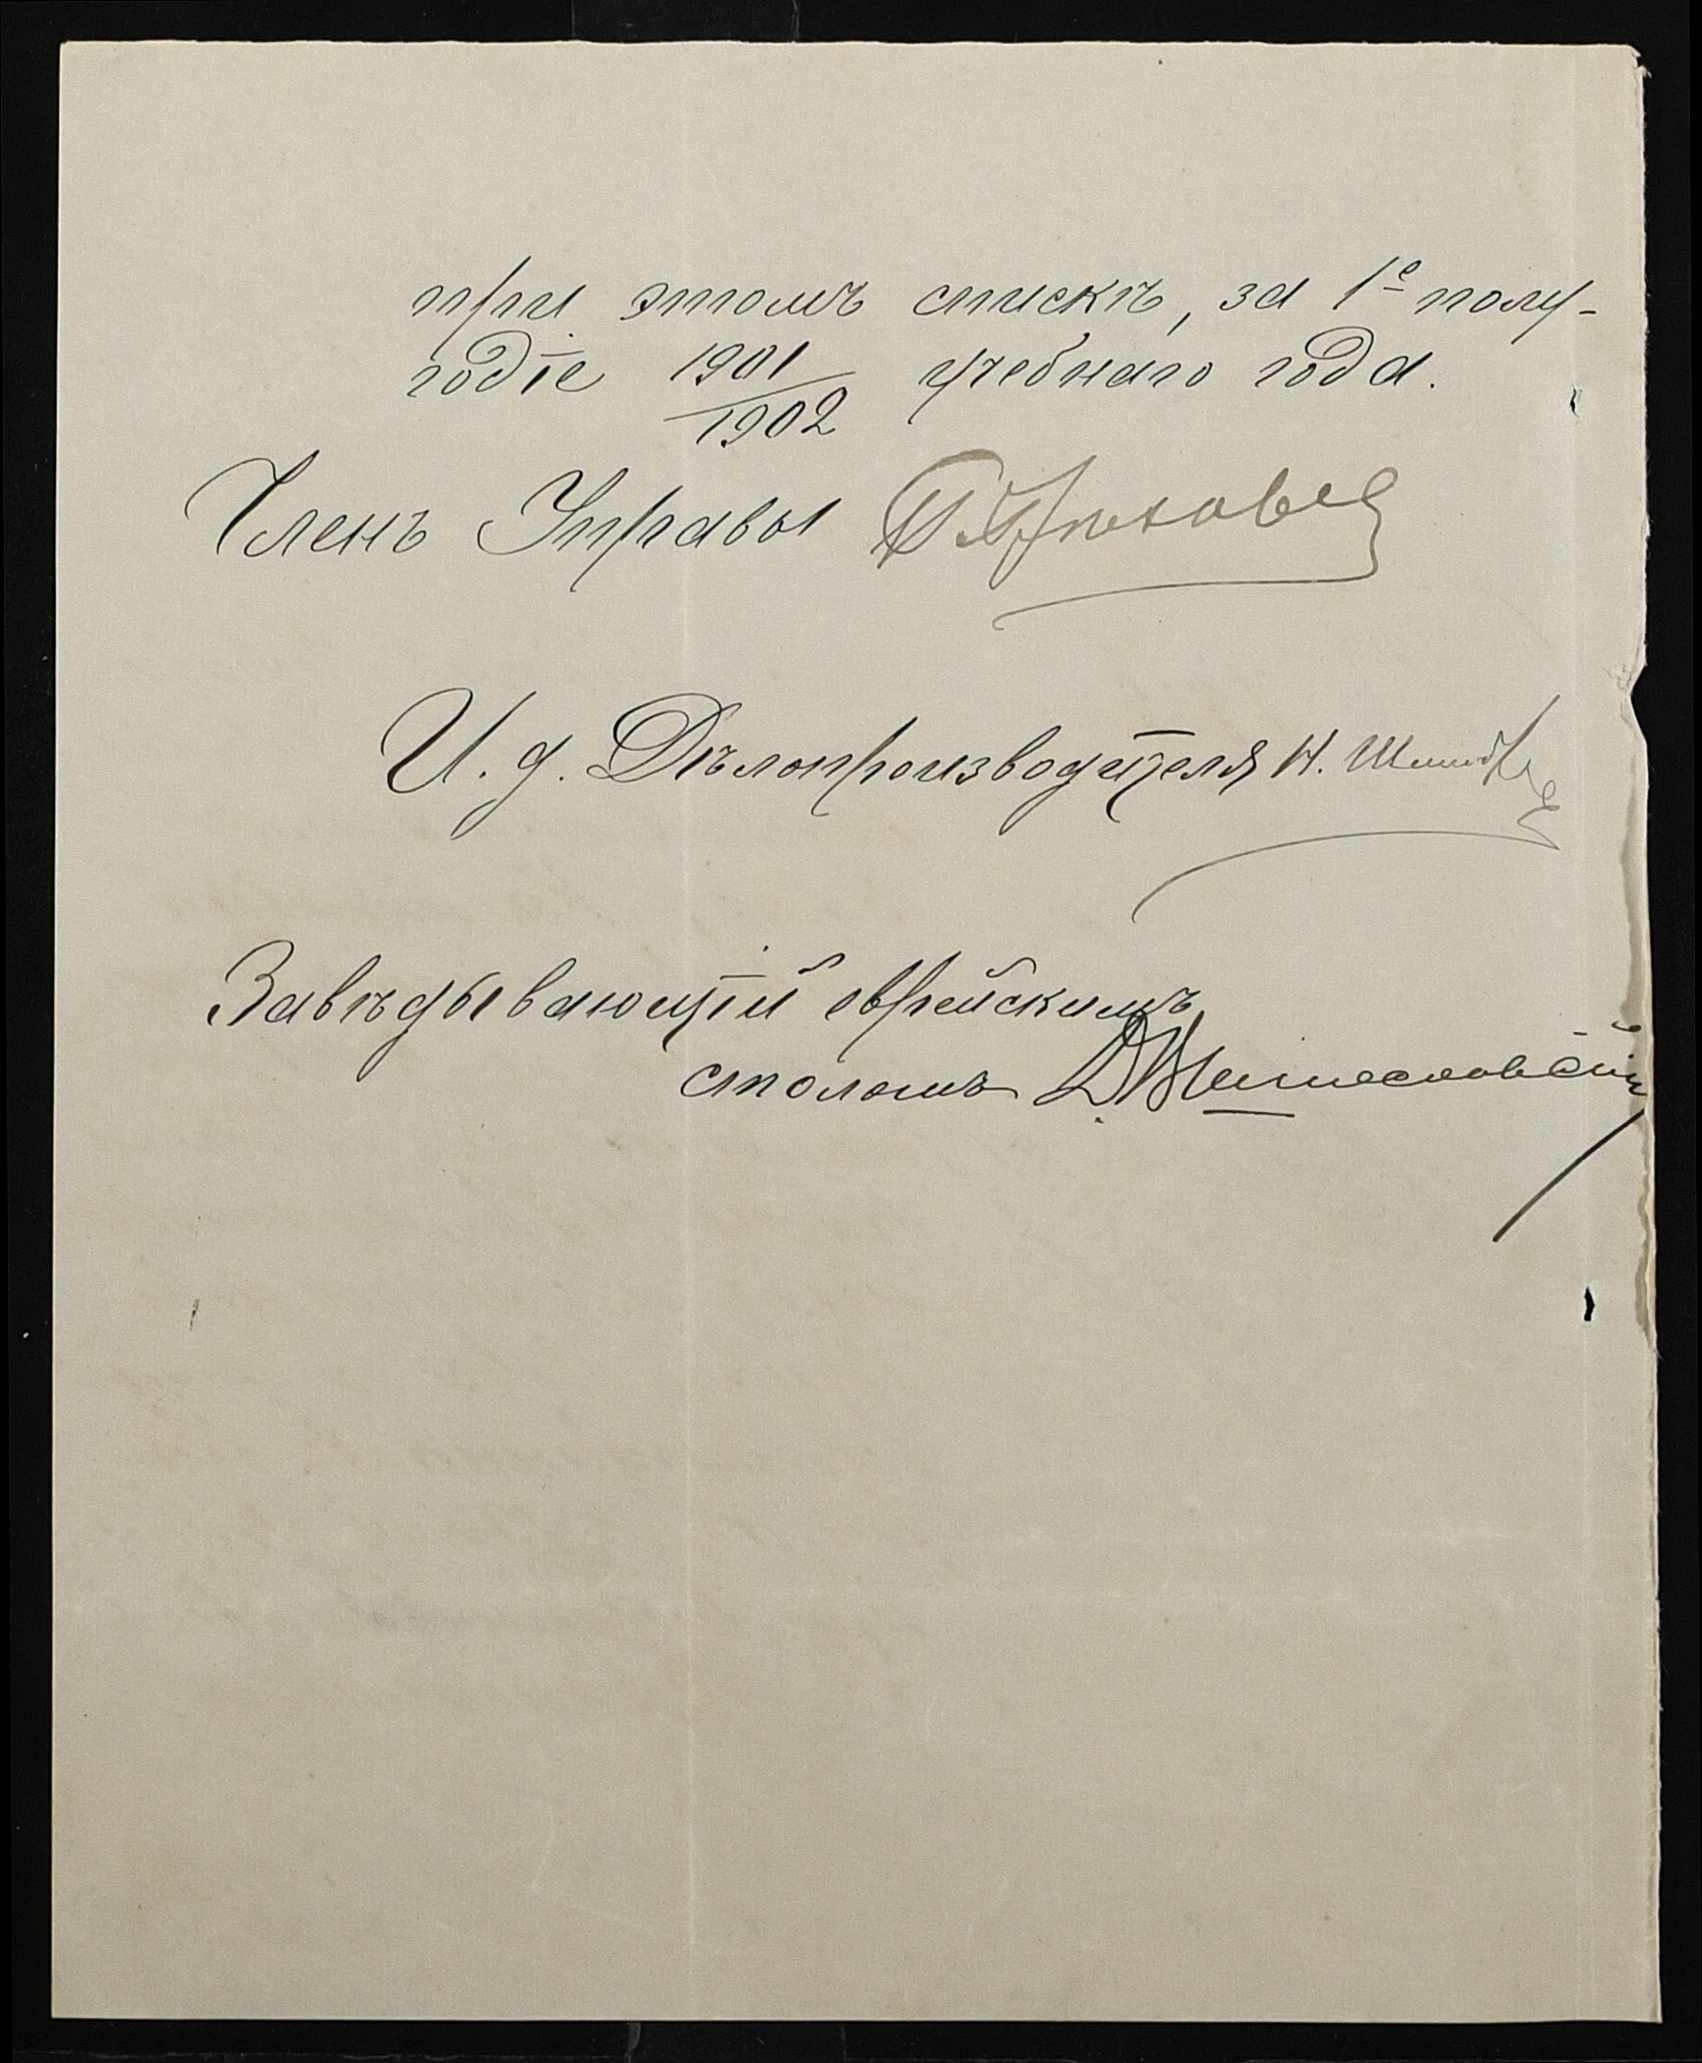 при этомъ спискѣ, за 1е полу-
годіе 1901/1902 учебнаго года.
Членъ Управы
И. д. Дѣлопроизводителя Н.
Завѣдывающій еврейскимъ
столомъ Д.